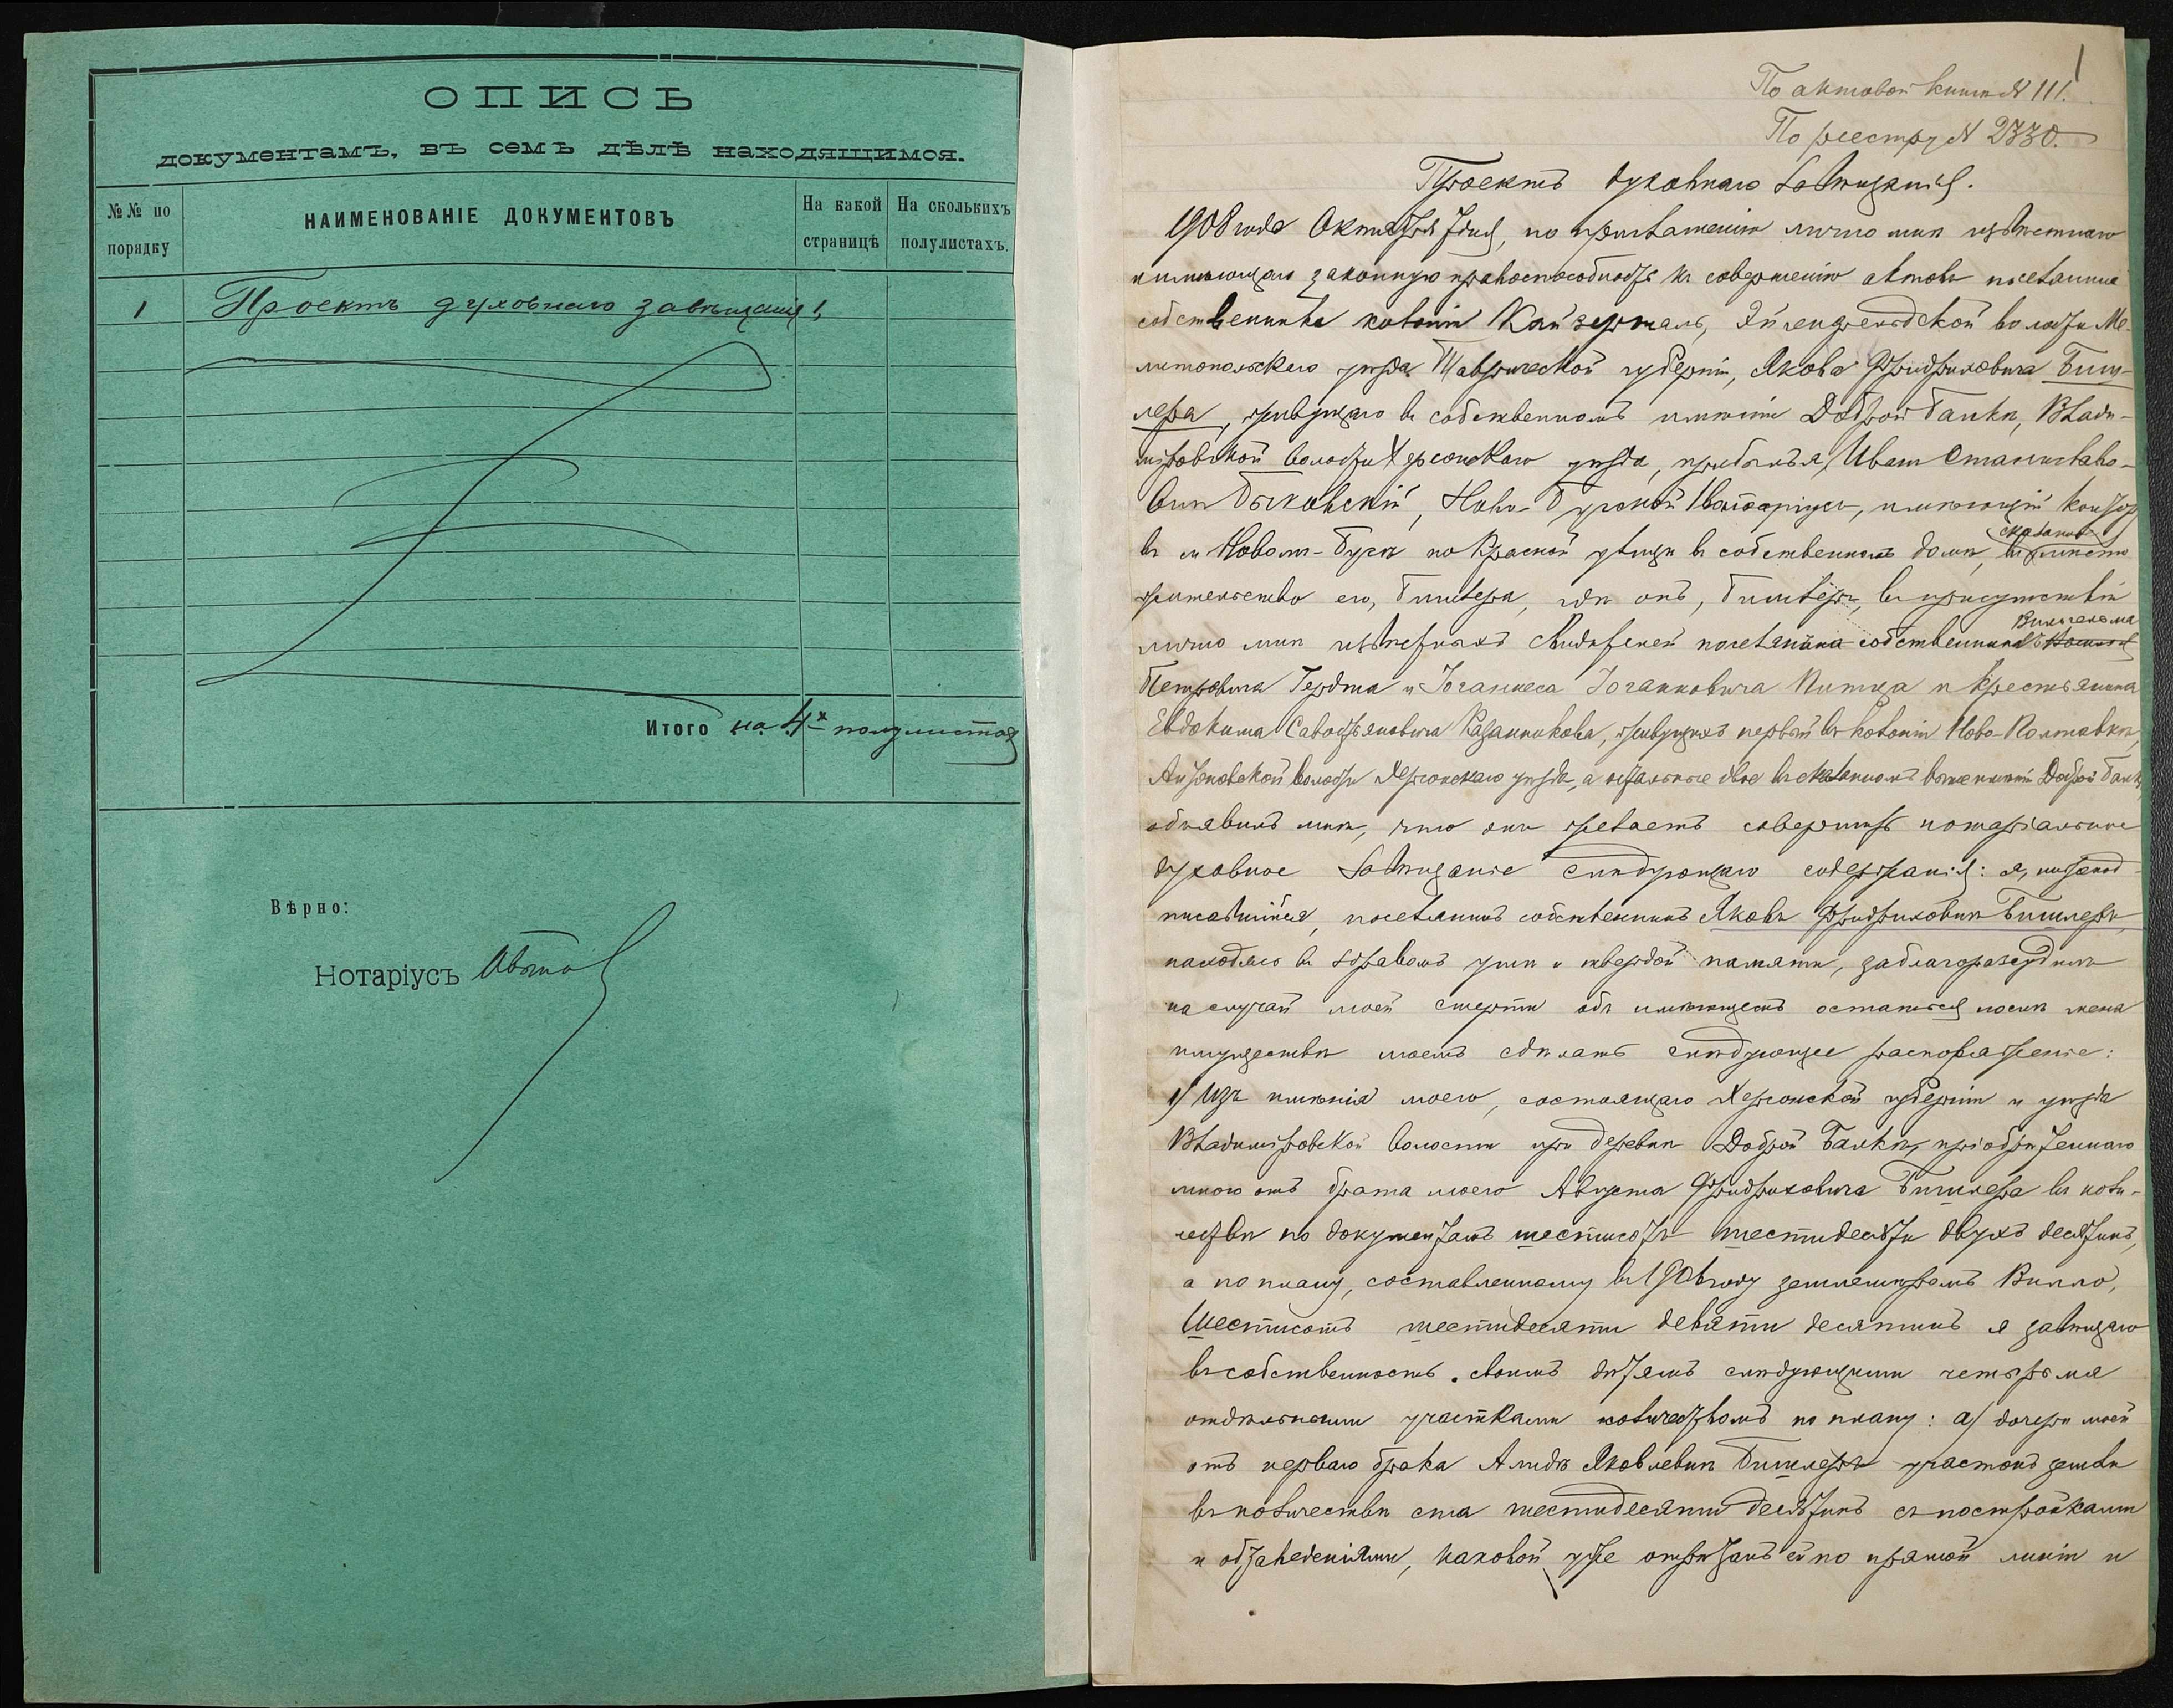 ОПИСЬ
документамъ, въ семъ дѣлѣ находящимся.
№№ по порядку
НАИМЕНОВАНІЕ ДОКУМЕНТОВЪ
На какой страницѣ
На сколькихъ полулистахъ.
1 Проектъ духовнаго завѣщанія 1,
Итого на 4х полулистах
Вѣрно:
Нотаріусъ
1
По актовой книгѣ № 111.
По реестру № 2330.
Проектъ духовнаго завѣщанія.
1908 года Октября дня, по приглашенію лично мнѣ извѣстнаго
и имѣющаго законную правоспособность къ совершенію актовъ поселянина
собственника колоніи Кайзерталь, Эйгенфельдской волости Ме-
литопольскаго уѣзда Таврической губерніи, Якова Фридриховича Биш-
лера, живущаго въ собственномъ имѣніи Доброй Балкѣ, Влади-
міровской волости Херсонскаго уѣзда, прибылъ я, Иванъ Станиславо-
вичъ Ново-Бугскій Нотаріусъ, имѣющій контору
въ м. Новомъ-Бугѣ по Красной улицѣ въ собственномъ домѣ, въ сказанное мѣсто
жительство его, Бишлера, гдѣ онъ, Бишлеръ, въ присутствіи
лично мнѣ извѣстныхъ свидѣтелей поселянъ собственниковъ Вильгельма
Петровича и Іоганнеса Іоганновича и крестьянина
Евдокима живущихъ первый въ колоніи Ново-Полтавкѣ,
волости Херсонскаго уѣзда, а остальные двое въ сказанномъ выше имѣніи Доброй Балкѣ,
объявилъ мнѣ, что онъ желаетъ совершить нотаріальное
духовное завѣщаніе слѣдующаго содержанія: я, нижепод-
писавшійся, поселянинъ собственникъ Яковъ Фридриховичъ Бишлеръ,
находясь въ здравомъ умѣ и твердой памяти, заблагоразсудилъ
на случай моей смерти объ имѣющемъ остаться послѣ меня
имуществѣ моемъ сдѣлать слѣдующее распоряженіе:
1) Изъ имѣнія моего, состоящаго Херсонской губерніи и уѣзда
Владиміровской волости при деревнѣ Доброй Балкѣ, пріобрѣтеннаго
мною отъ брата моего Августа Фридриховича Бишлера въ коли-
чествѣ по документамъ шестисотъ шестидесяти двухъ десятинъ,
а по плану, составленному въ году землемѣромъ
шестисотъ шестидесяти девяти десятинъ я завѣщаю
въ собственность своимъ дѣтямъ слѣдующими четырьмя
отдѣльными участками количествомъ по плану: а) дочери моей
отъ перваго брака Алидѣ Яковлевнѣ Бишлеръ участокъ земли
въ количествѣ ста шестидесяти десятинъ съ постройками
и обзаведеніями, каковой уже отрѣзанъ ей по прямой линіи и